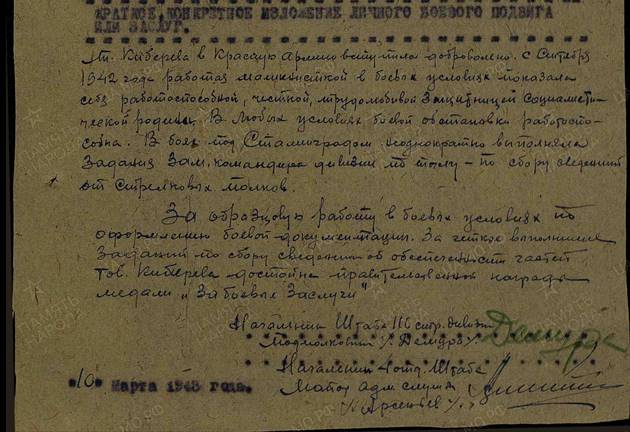 КРАТКОЕ, КОНКРЕТНОЕ ИЗЛОЖЕНИЕ ЛИЧНОГО БОЕВОГО ПОДВИГА
ИЛИ ЗАСЛУГ.
Тт. Киберева в Красную армию вступила доброволено. с Октября
1942 года работая машинисткой в боевых условиях показала
себя работоспособной, честной, трудолюбивой защитницей социалисти-
ческой родины. В любых условиях боевой обстановки работоспо-
собна. В боях под Сталинградом неоднократно выполняла
задания Зам. командира дивизии по тылу - по сбору сведений
от стрелковых полков.
За образцовую работу в боевых условиях по
оформлению боевой документации. За четкое выполнение
заданий по сбору сведений об обеспеченности частей
тов. Киберева достойна правительственной награды
медали "За боевые заслуги"
Начальник Штаба 116 стр. дивизии
Подполковник /. Демура /
Начальник 4 отд. Штаба
"10" Марта 1943 года.
Майор адм службы
/. Арсеньев /.